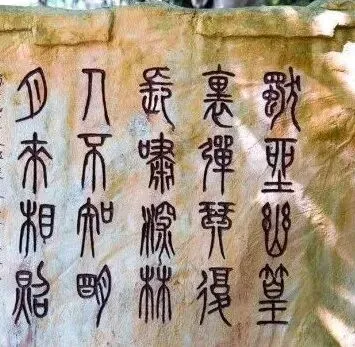 獨坐幽篁
裏彈琴復
長嘯深林
人不知明
月來相照